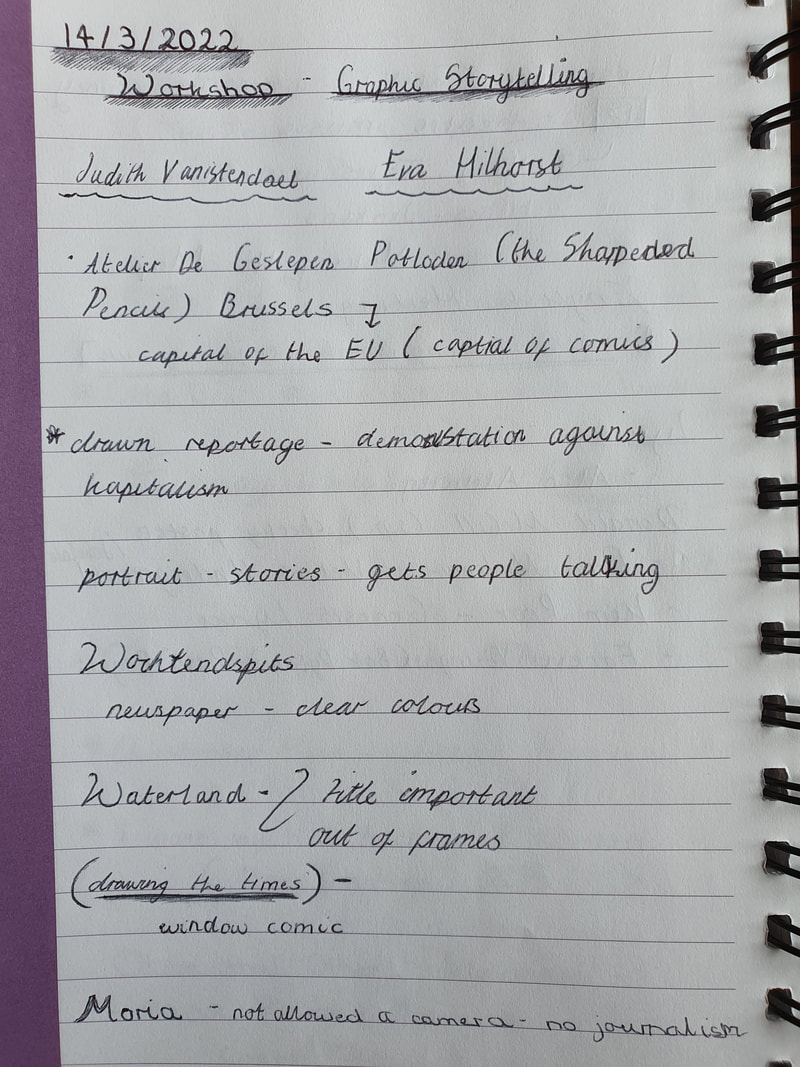 14/3/2022
Workshop - Graphic Storytelling
Judith Vanistendael Eva Hilhorst
· Atelier De Geslepen Potloden (the Sharpended
Pencils) Brussels ↴
capital of the EU (captial of comics)
* drawn reportage - demonstation against
kapitalism
portrait - stories - gets people talking
Wochtendspits
newspaper - clear colours
Waterland - title important
out of frames
(drawing the times) -
window comic
Moria - not allowed a camera - no journalism